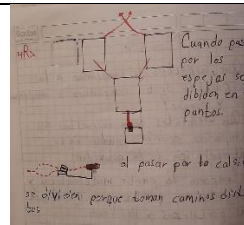 Rx
Cuando pas
por los
espejos se
dibiden en
puntos.
al pasar por la calsi
se dividen porque toman caminos disti
tos